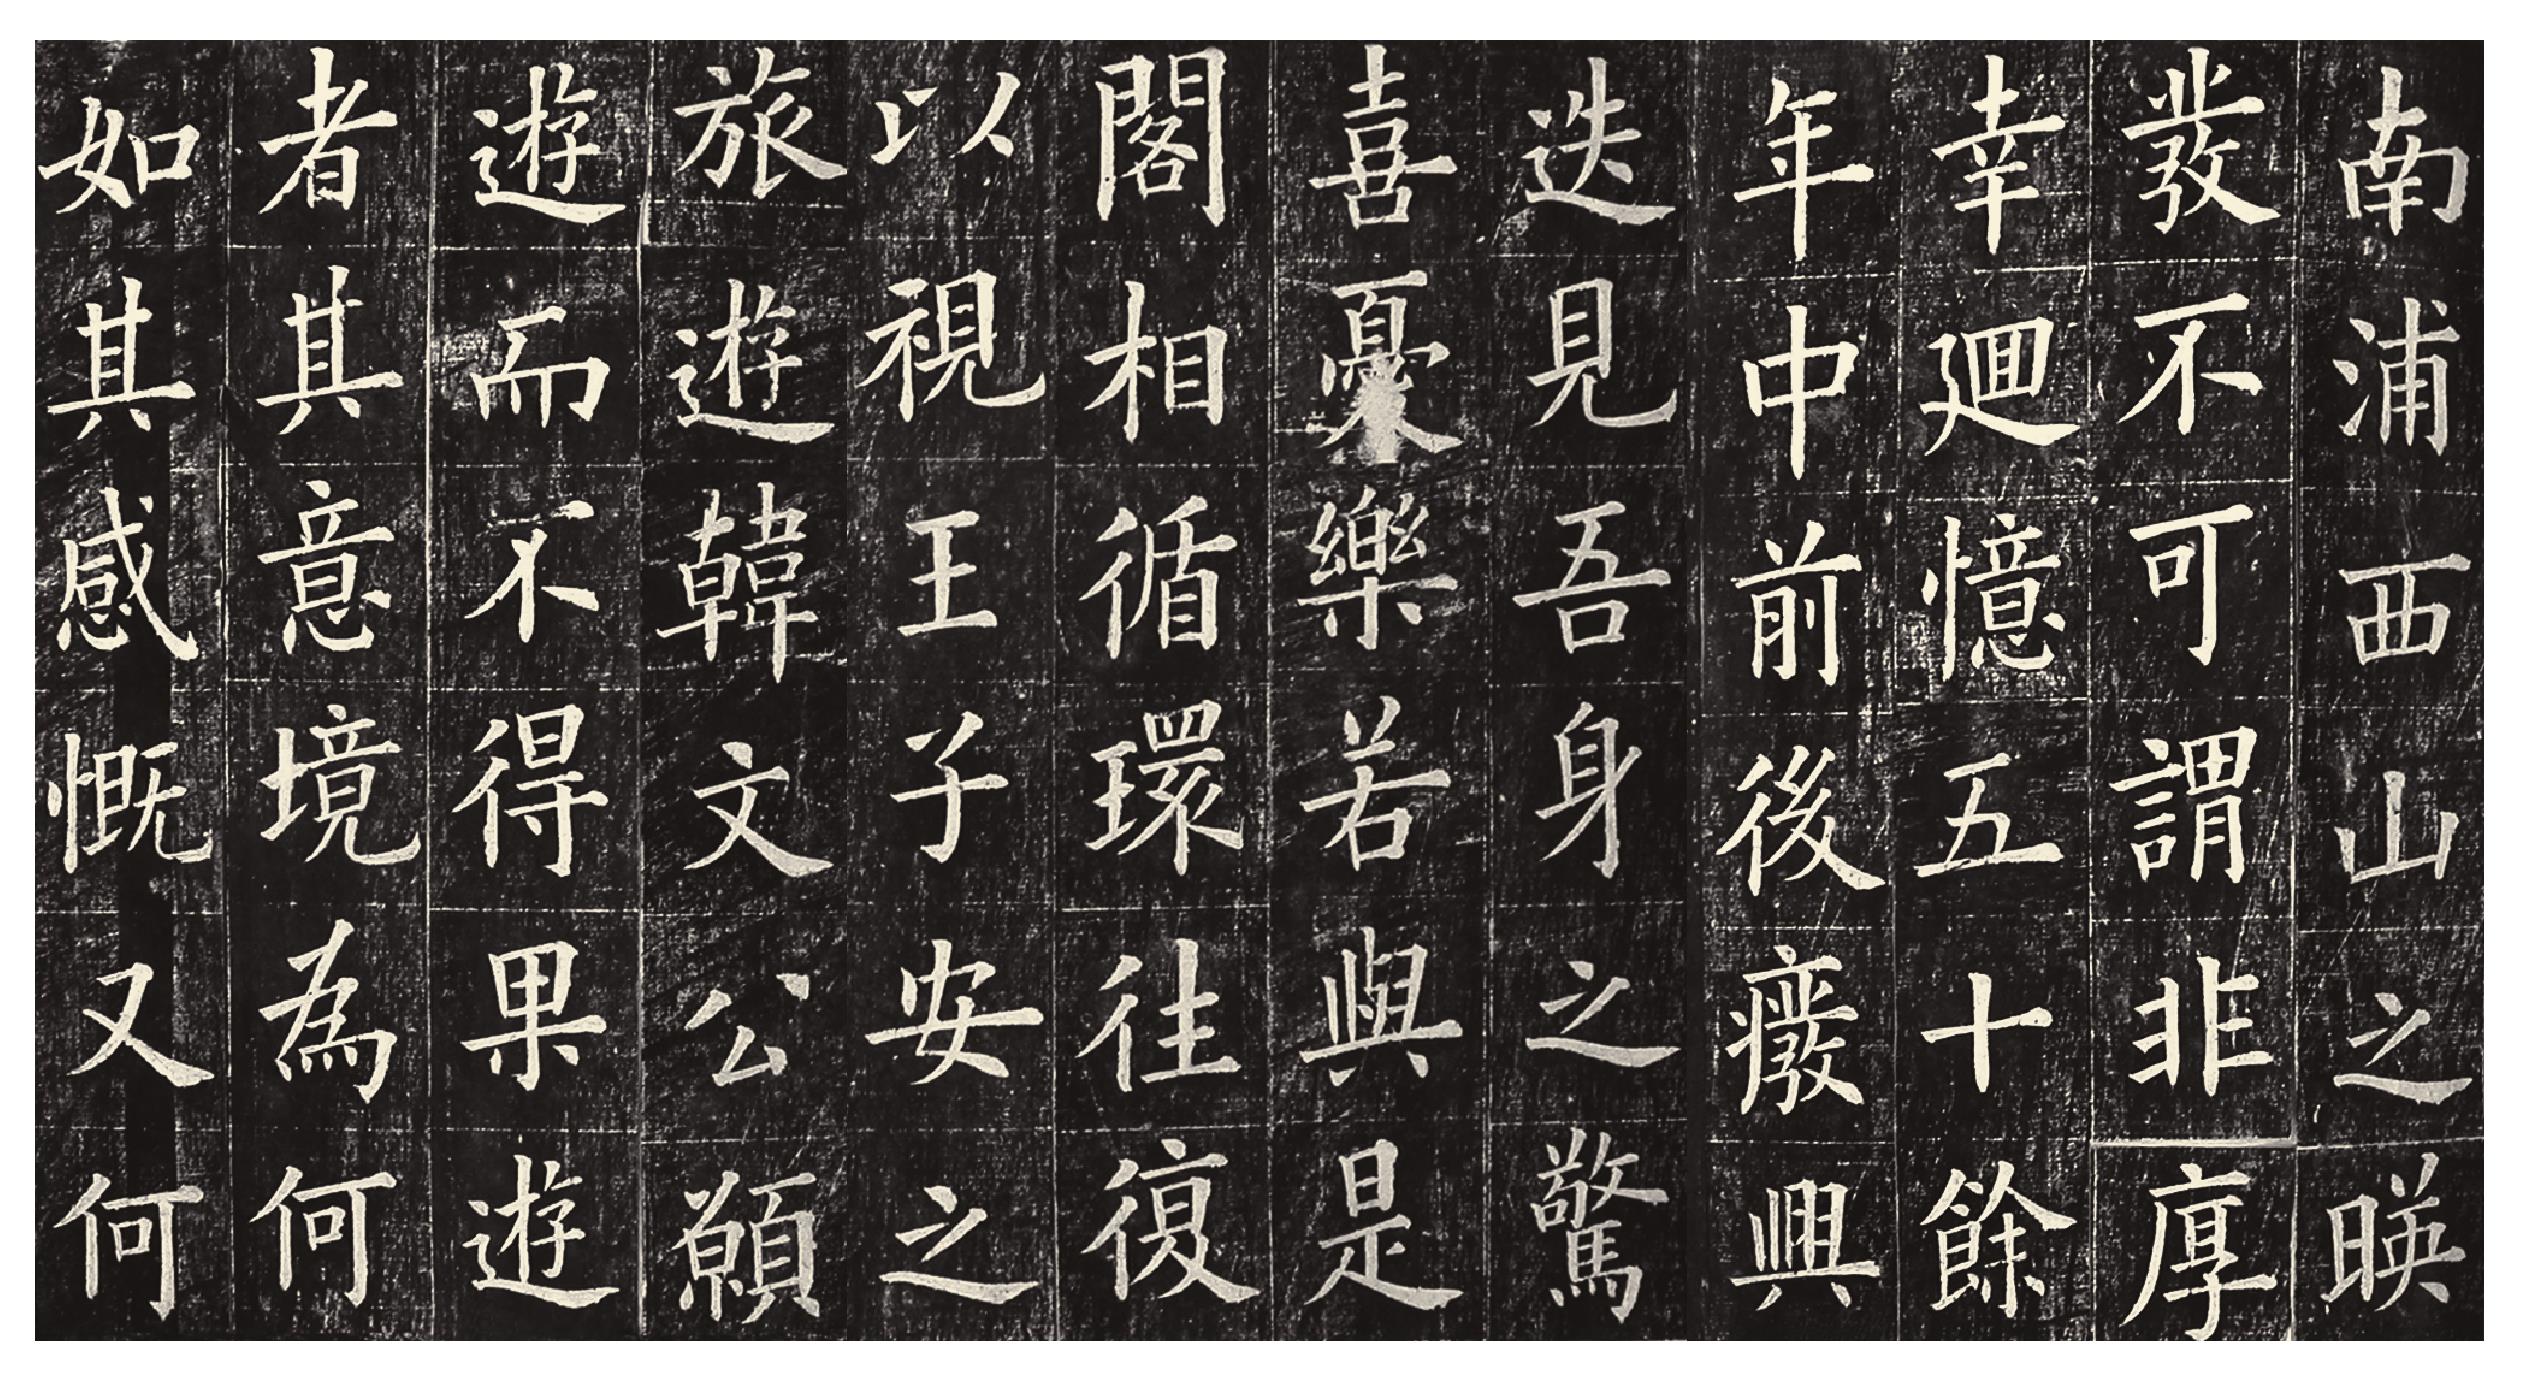 南浦西山之暎
發不可謂非厚
幸廻憶五十餘
年中前後癈興
迭見吾身之驚
喜憂樂若與是
閣相循環往復
以視王子安之
旅遊韓文公願
遊而不得果遊
者其意境為何
如其感慨又何